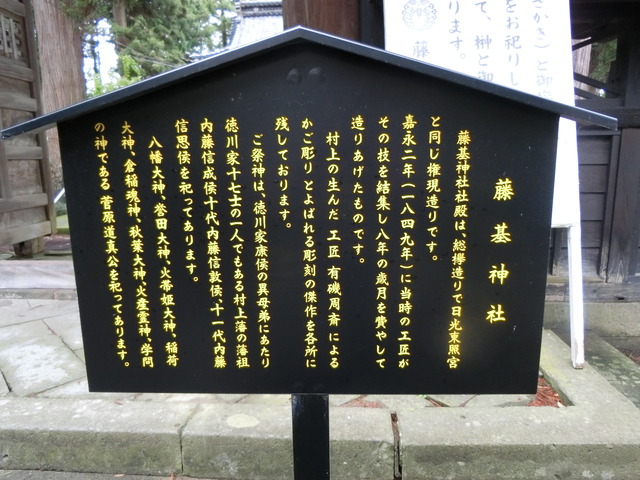 藤基神社
藤基神社社殿は、総欅造りで日光東照宮
と同じ権現造りです。
嘉永二年(一八四九年)に当時の工匠が
その技を結集し八年の歳月を費やして
造りあげたものです。
村上の生んだ工匠有磯周斎による
かご彫りとよばれる彫刻の傑作を各所に
残しております。
ご祭神は、徳川家康候の異母弟にあたり
徳川家十七士の一人でもある村上藩の藩祖
内藤信成候十代内藤信敦候、十一代内藤
信思候を祀ってあります。
八幡大神、誉田大神、火帯姫大神、稲荷
大神、倉稲魂神、秋葉大神、火産霊神、学問
の神である菅原道真公を祀ってあります。
さかき)と御
をお祀りし
て、榊と御
ります。
藤